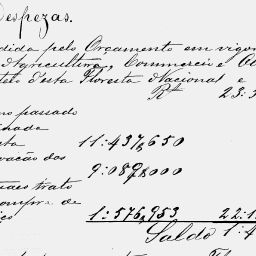 Despezas.
dida pelo Orçamento em vigor
Agricultura, Commercio e
desta Floresta Nacional e
Rs 23:
no passado
nada
sta 11:437,650
vação dos
9:087,000
uaes trato
compra de
iço 1:576,953 22:1
Saldo 1:4